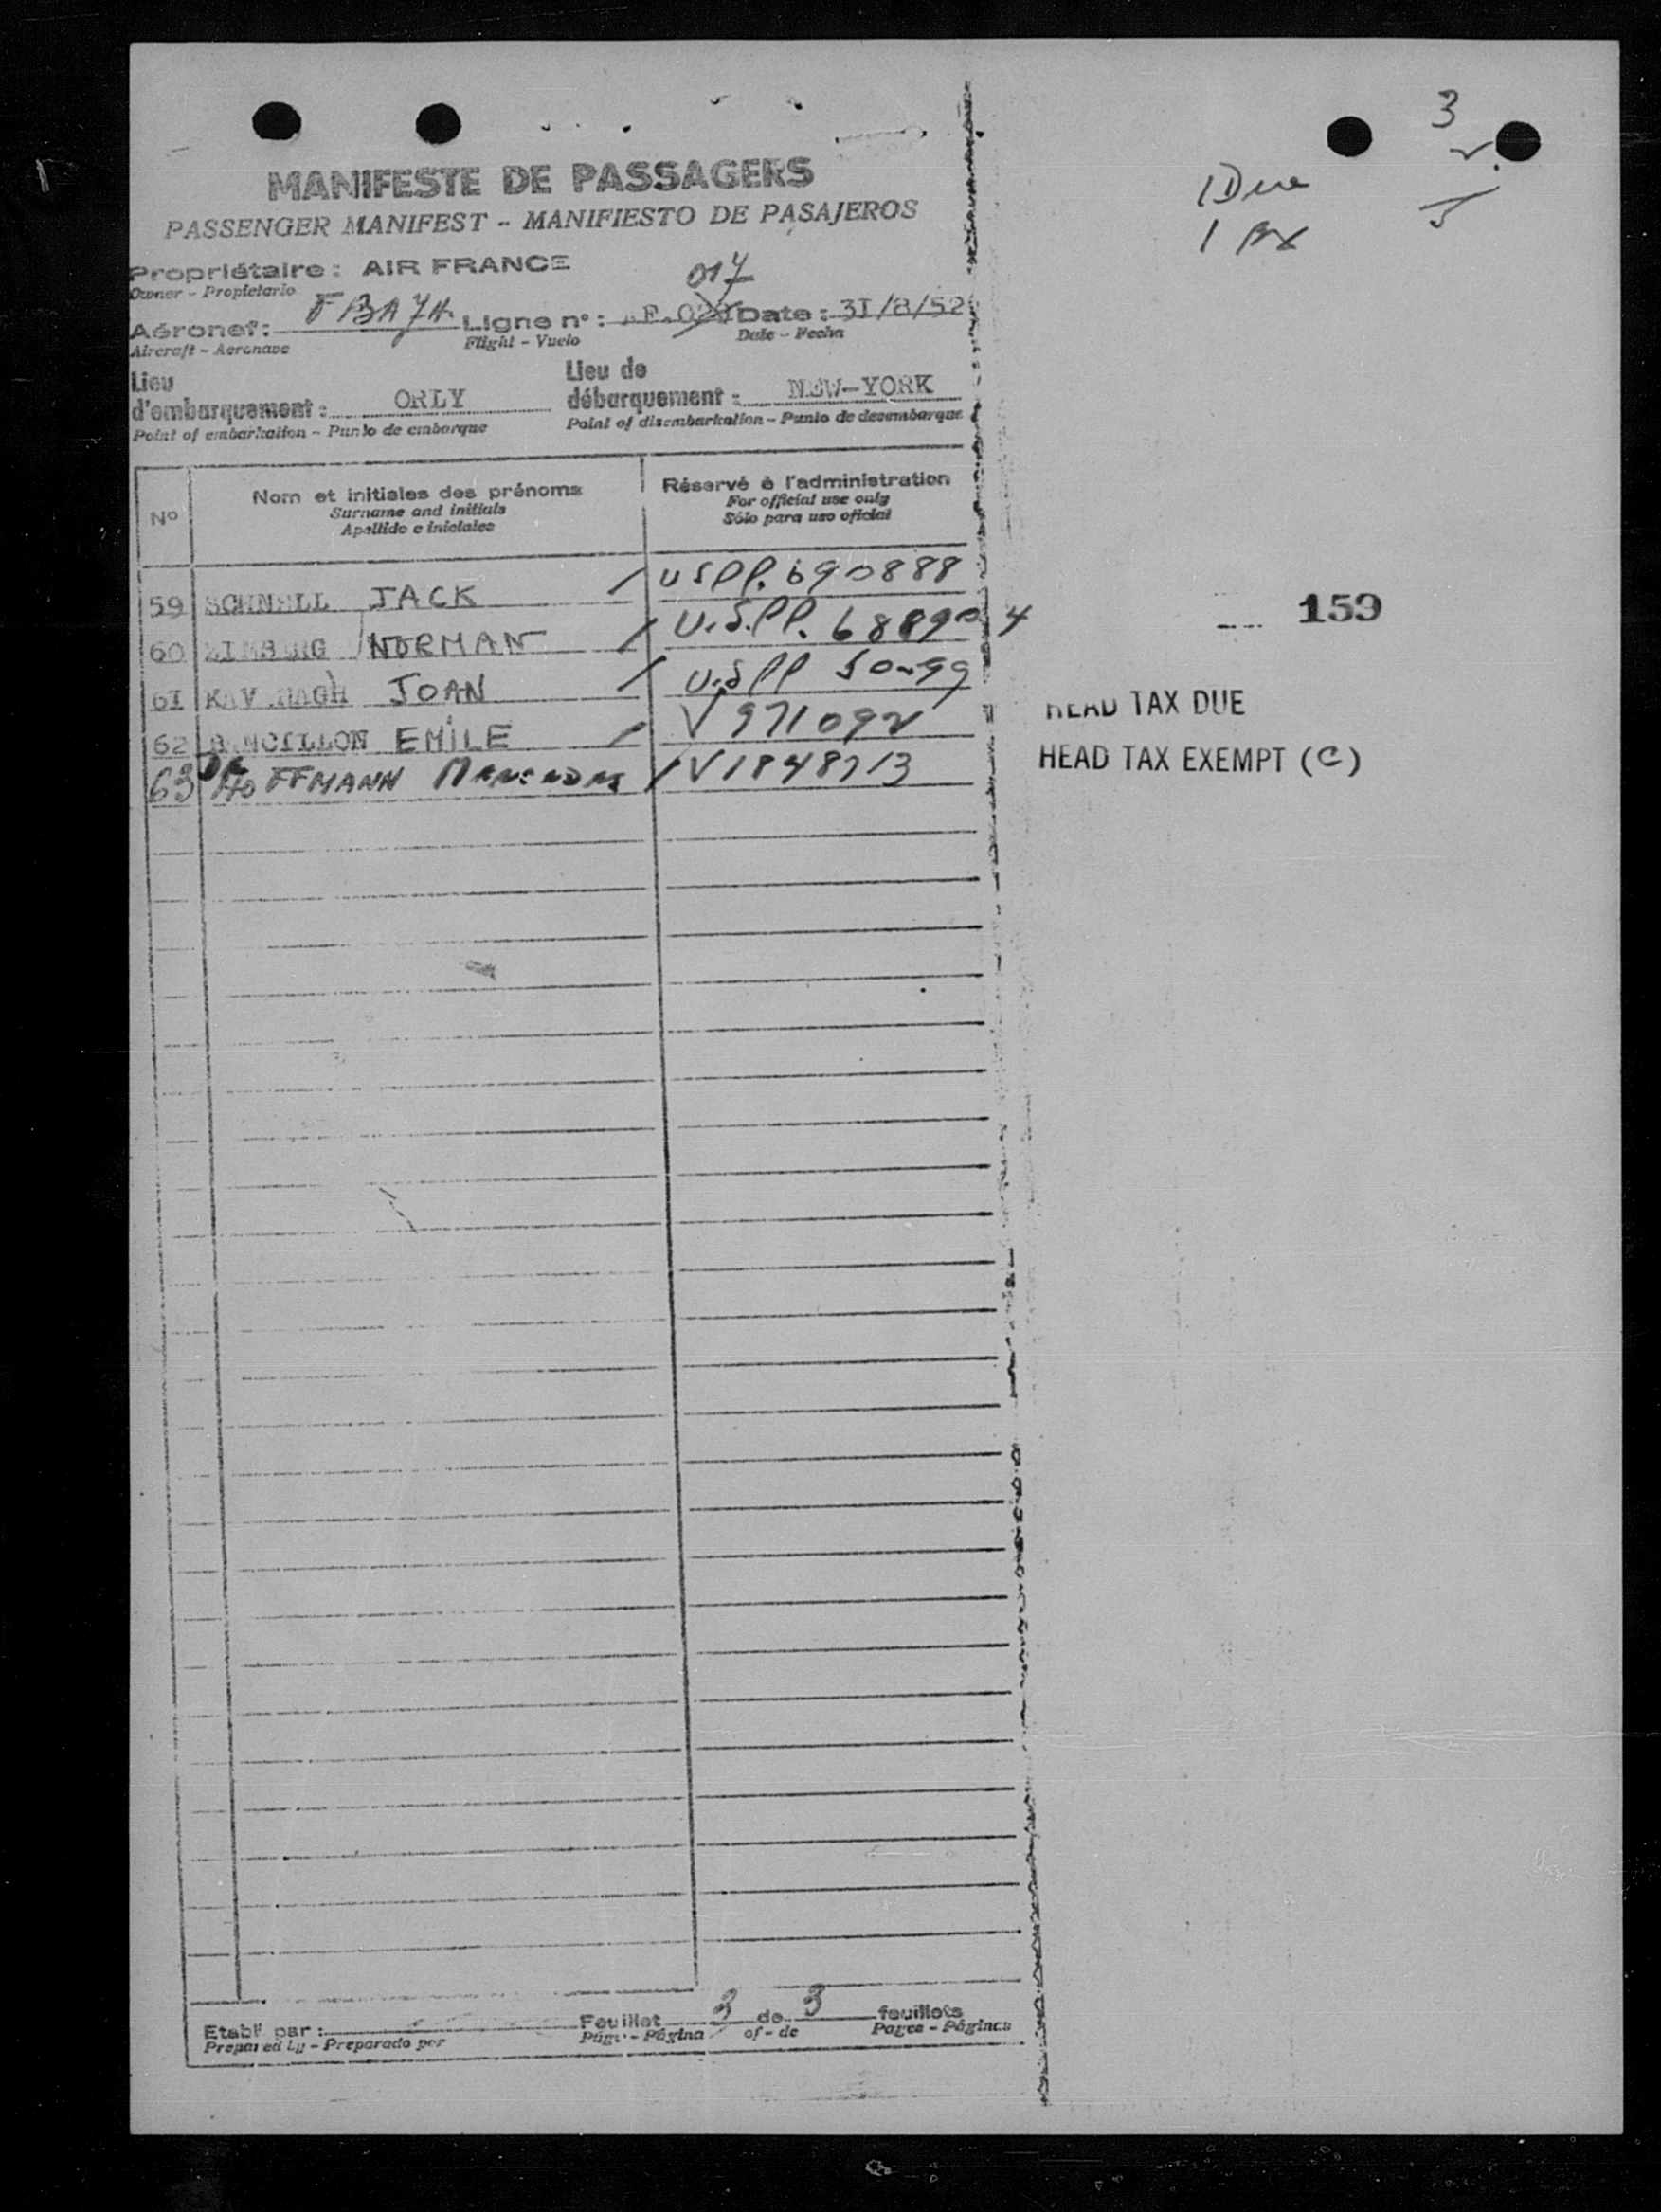 3
1 Due
1 Ex
MANIFESTE DE PASSAGERS
PASSENGER MANIFEST - MANIFIESTO DE PASAJEROS
Propriétaire : AIR FRANCE
Owner - Propietario
017
Aéronef : Ligne n° : Date : 31/8/52
Aircraft - Aeronave Flight - Vuelo Date - Fecha
Lieu d'embarquement : ORLY
Point of embarkation - Punto de embarque
Lieu de débarquement : NEW-YORK
Point of disembarkation - Punto de desembarque
N° Nom et initiales des prénoms Réservé à l'administration
Surname and initials For official use only
Apellido e iniciales Sólo para uso oficial
59 SCHNELL JACK / USPP. 690888
60 NORMAN / U.S.PP. 688904
159
61 KAVANAGH JOAN / U.S.PP
HEAD TAX DUE
62 EMILE / V 971092
HEAD TAX EXEMPT (C)
63 HOFFMANN / V1848713
Etabli par : Feuillet 3 de 3 feuillets
Prepared by - Preparado por Page - Página of - de Pages - Páginas